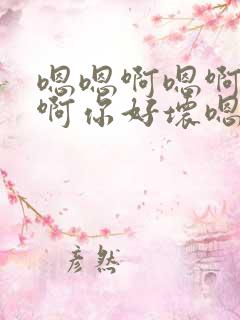 嗯嗯啊嗯啊
啊你好壞嗯
彦然